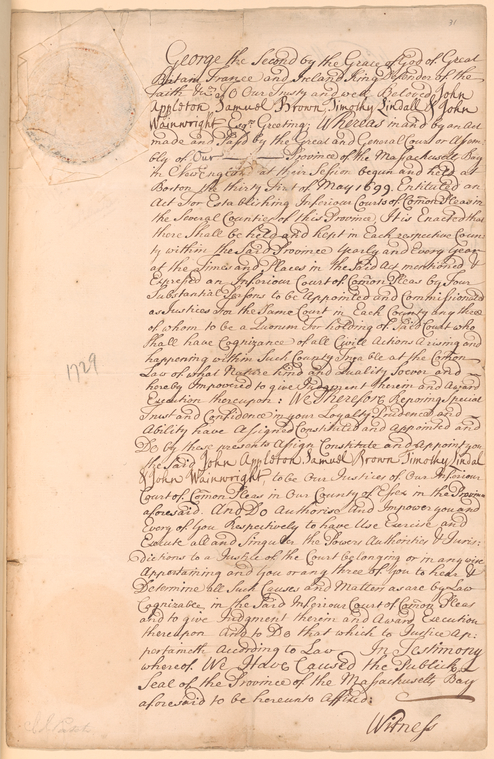 31
George the Second by the Grace of God of Great
Britain, France and Ireland King Defender of the
Faith &c. To Our Trusty and well Beloved John
Appleton, Samuel Brown, Timothy Lindall & John
Wainwright Esqrs. Greeting; Whereas in and by an Act
made and Pass'd by the Great and General Court or Assem
bly of Our Province of the Massachusetts Bay
in New England at their Session begun and held at
Boston the thirty first of May 1699. Entituled an
Act For Establishing Inferiour Courts of Comon Pleas in
the Several Counties of this Province, It is Enacted that
there Shall be held and kept in Each respective Coun
ty within the Said Province Yearly and Every Year
at the Times and Places in the Said Act mentioned &
Expressed an Inferiour Court of Comon Pleas by Four
Substantial Persons to be Appointed and Commissionated
as Justices for the Same Court in Each County any three
of whom to be a Quorum For holding of Said Court who
Shall have Cognizance of all Civill Actions Arising and
happening within Such County Tryable at the Comon
Law of what Nature kind and Quality Soever and
hereby Impowred to give Judgment therein and Award
Execution thereupon; We Therefore Reposing special
Trust and Confidence in your Loyalty Prudence and
Ability have Assigned Constituted and Appointed and
Do by these presents Assign Constitute and appoint you
the Said John Appleton, Samuel Brown Timothy Lindal
& John Wainwright to be Our Justices of Our Inferiour
Court of Comon Pleas in Our County of Essex in the Province
aforesaid. And Do Authorise and Impower you and
Every of You Respectively to have Use Exercise and
Execute all and Singular the Powers Authorities & Juris:
dictions to a Justice of the Court belonging or in any wise
Appertaining and you or any three of you to hear &
Determine all Such Causes and Matters as are by Law
Cognizable in the Said Inferiour Court of Comon Pleas
and to give Judgment therein and Award Execution
thereupon And to Do that which to Justice Ap:
pertaineth According to Law In Testimony
whereof We Have Caused the Publick
Seal of the Province of the Massachusetts Bay
aforesaid to be hereunto Affixed:
Witness
1729